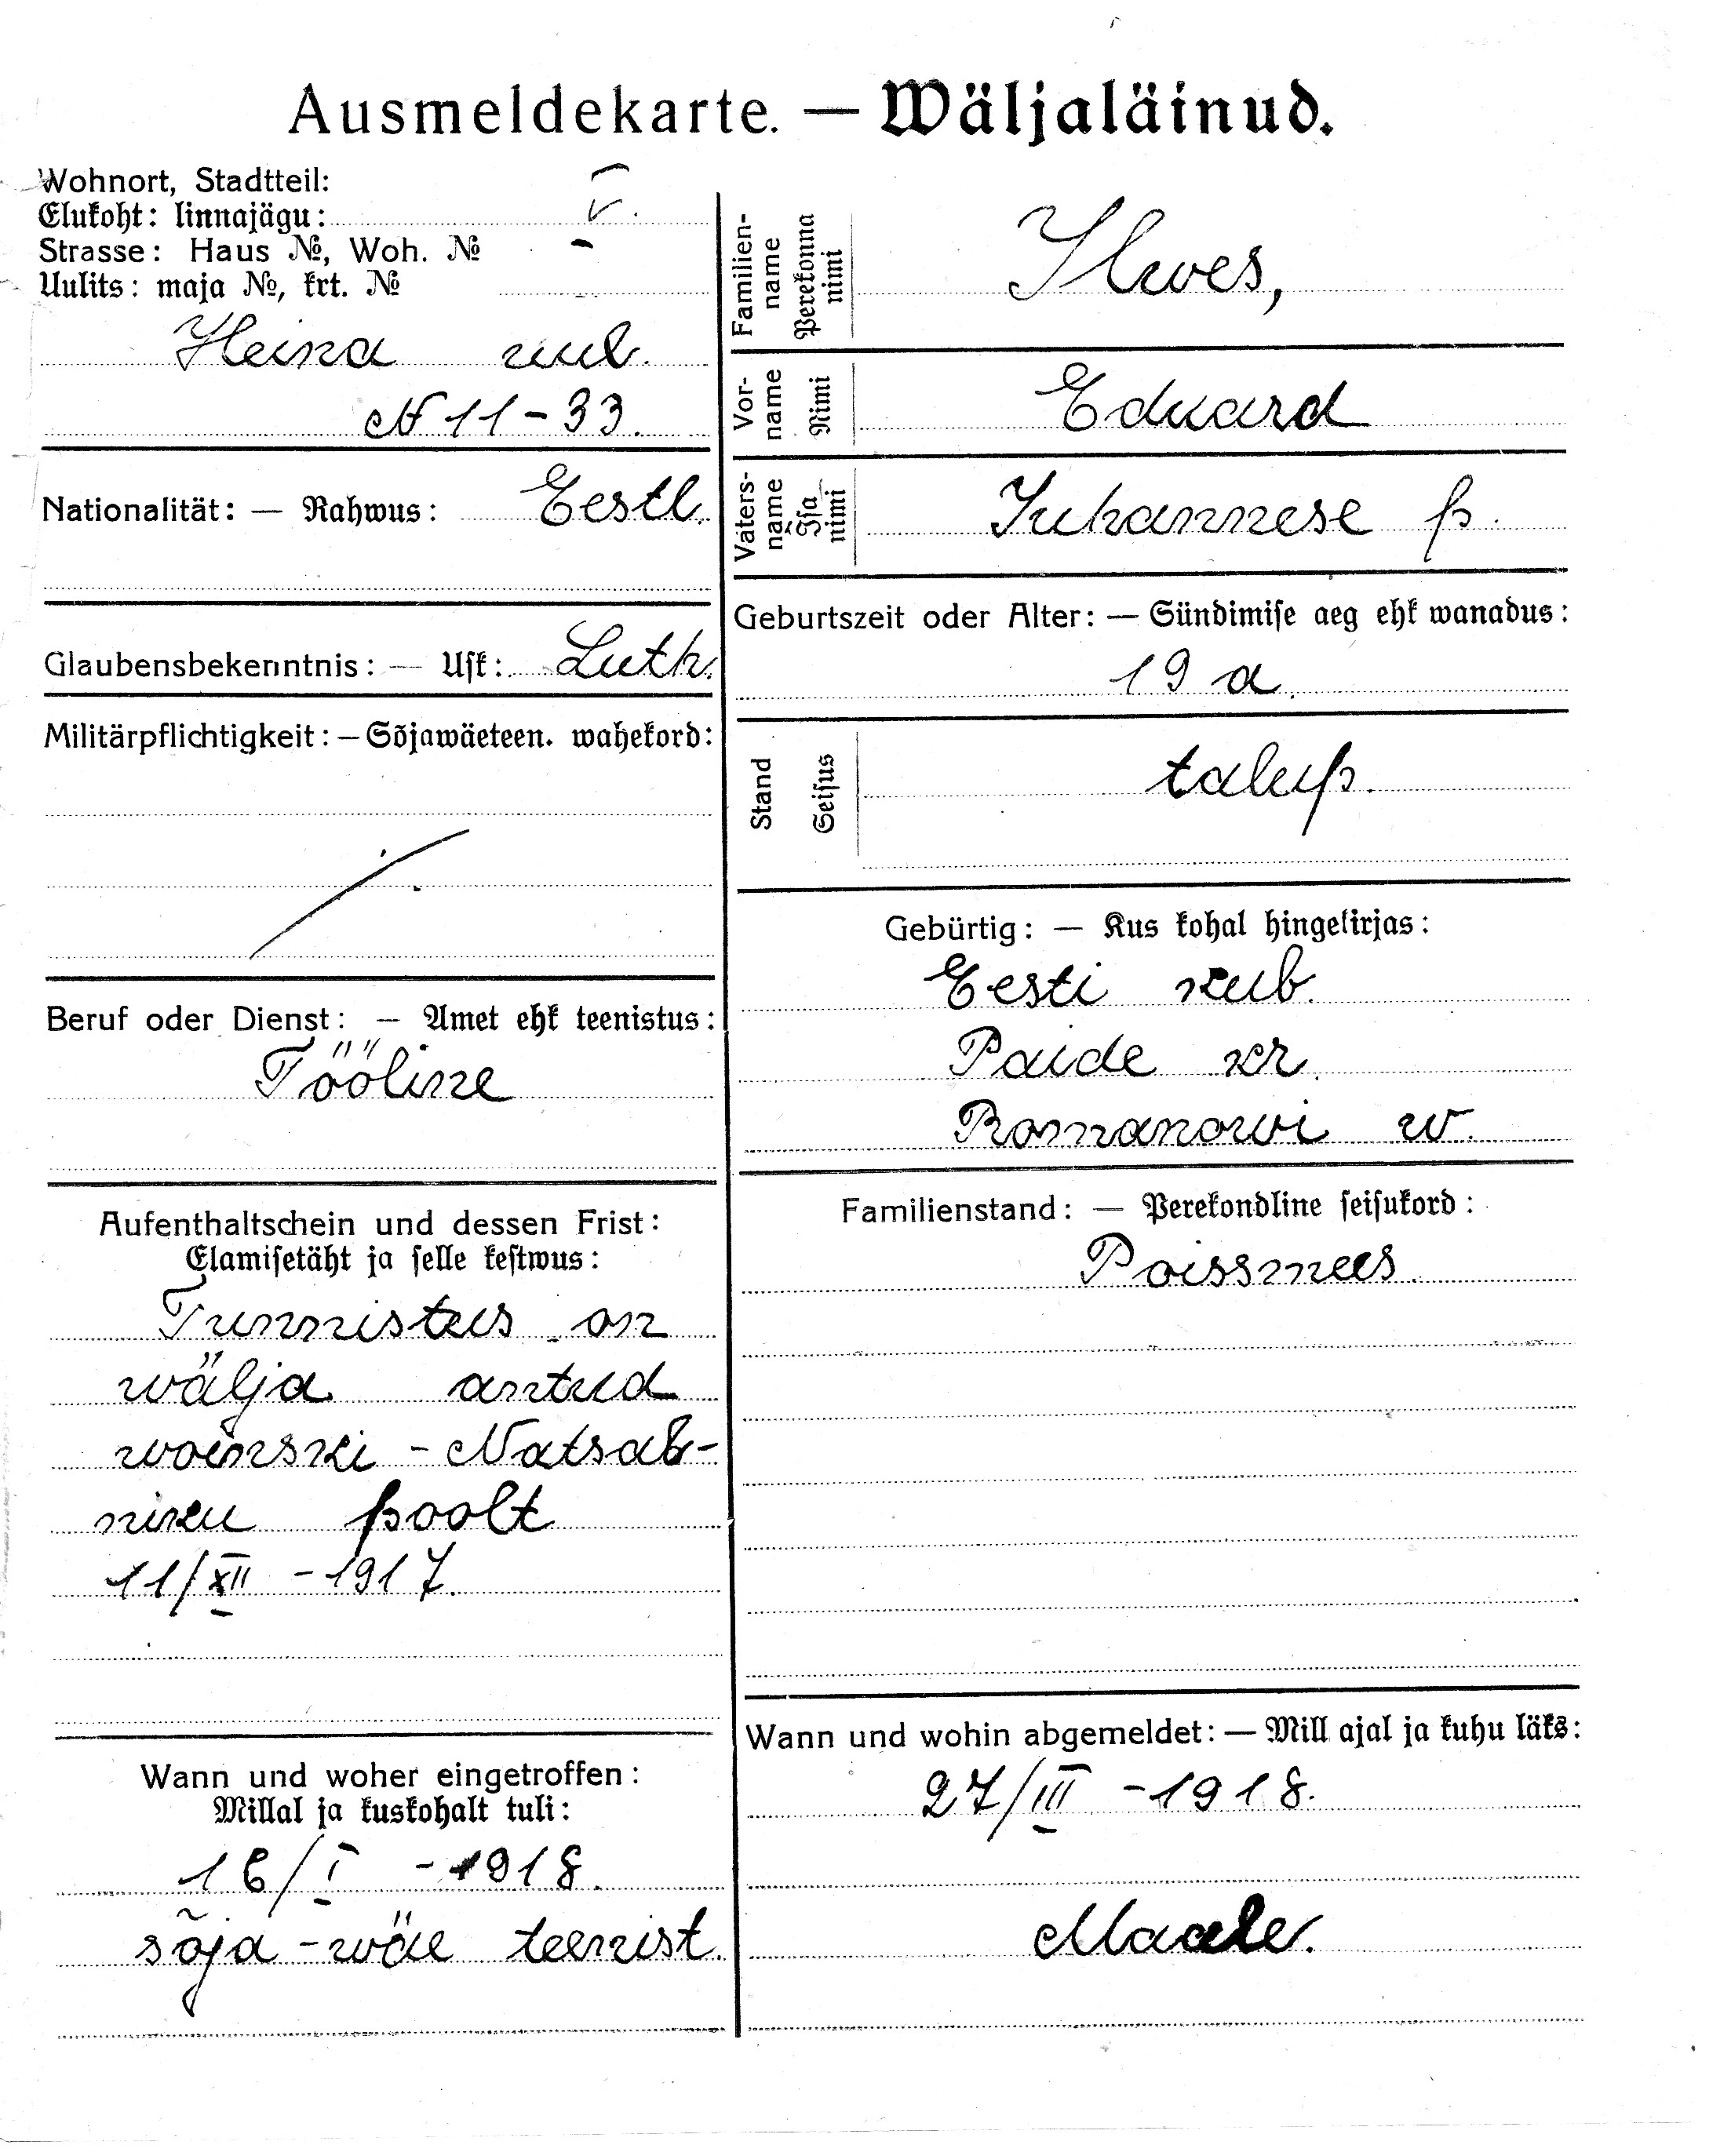 Ausmeldekarte. — Wäljaläinud.
Wohnort, Stadtteil:
Elukoht: linnajägu: V.
Strasse: Haus №, Woh. №
Uulits: maja №, krt. №
Heina uul.
N 11 - 33.
Nationalität: — Rahwus: Eestl.
Glaubensbekenntnis: — Usk: Luth.
Militärpflichtigkeit: — Sõjawäeteen. wahekord:
Beruf oder Dienst: — Amet ehk teenistus:
Tööline
Aufenthaltschein und dessen Frist:
Elamisetäht ja selle kestwus:
Tunnistus on
wälja antud
woinski - Natsal-
niku poolt
11/XII - 1917.
Wann und woher eingetroffen:
Millal ja kuskohalt tuli:
16/I - 1918.
sõja-wäe teenist.
Familien-name Perekonna nimi
Ilwes,
Vor-name Nimi
Eduard
Vaters-name Isa nimi
Juhannese p.
Geburtszeit oder Alter: — Sündimise aeg ehk wanadus:
19 a.
Stand Seisus
talup.
Gebürtig: — Kus kohal hingekirjas:
Eesti kub.
Paide kr.
Romanowi w.
Familienstand: — Perekondline seisukord:
Poissmees.
Wann und wohin abgemeldet: — Mill ajal ja kuhu läks:
27/III - 1918.
Maale.